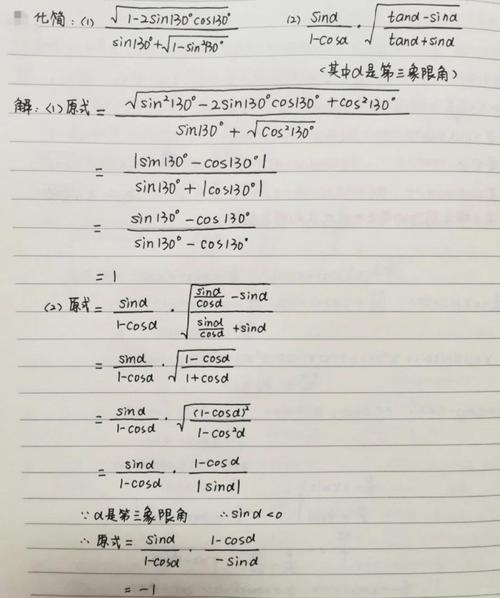 化简：(1) √(1-2sin130°cos130°) / (sin130°+√(1-sin²130°)) (2) sinα/(1-cosα) · √((tanα-sinα)/(tanα+sinα))
(其中α是第三象限角)
解：(1) 原式 = √(sin²130°-2sin130°cos130°+cos²130°) / (sin130°+√(cos²130°))
= |sin130°-cos130°| / (sin130°+|cos130°|)
= (sin130°-cos130°) / (sin130°-cos130°)
= 1
(2) 原式 = sinα/(1-cosα) · √((sinα/cosα -sinα)/(sinα/cosα +sinα))
= sinα/(1-cosα) · √((1-cosα)/(1+cosα))
= sinα/(1-cosα) · √((1-cosα)²/(1-cos²α))
= sinα/(1-cosα) · (1-cosα)/|sinα|
∵ α是第三象限角 ∴ sinα<0
∴ 原式 = sinα/(1-cosα) · (1-cosα)/(-sinα)
= -1